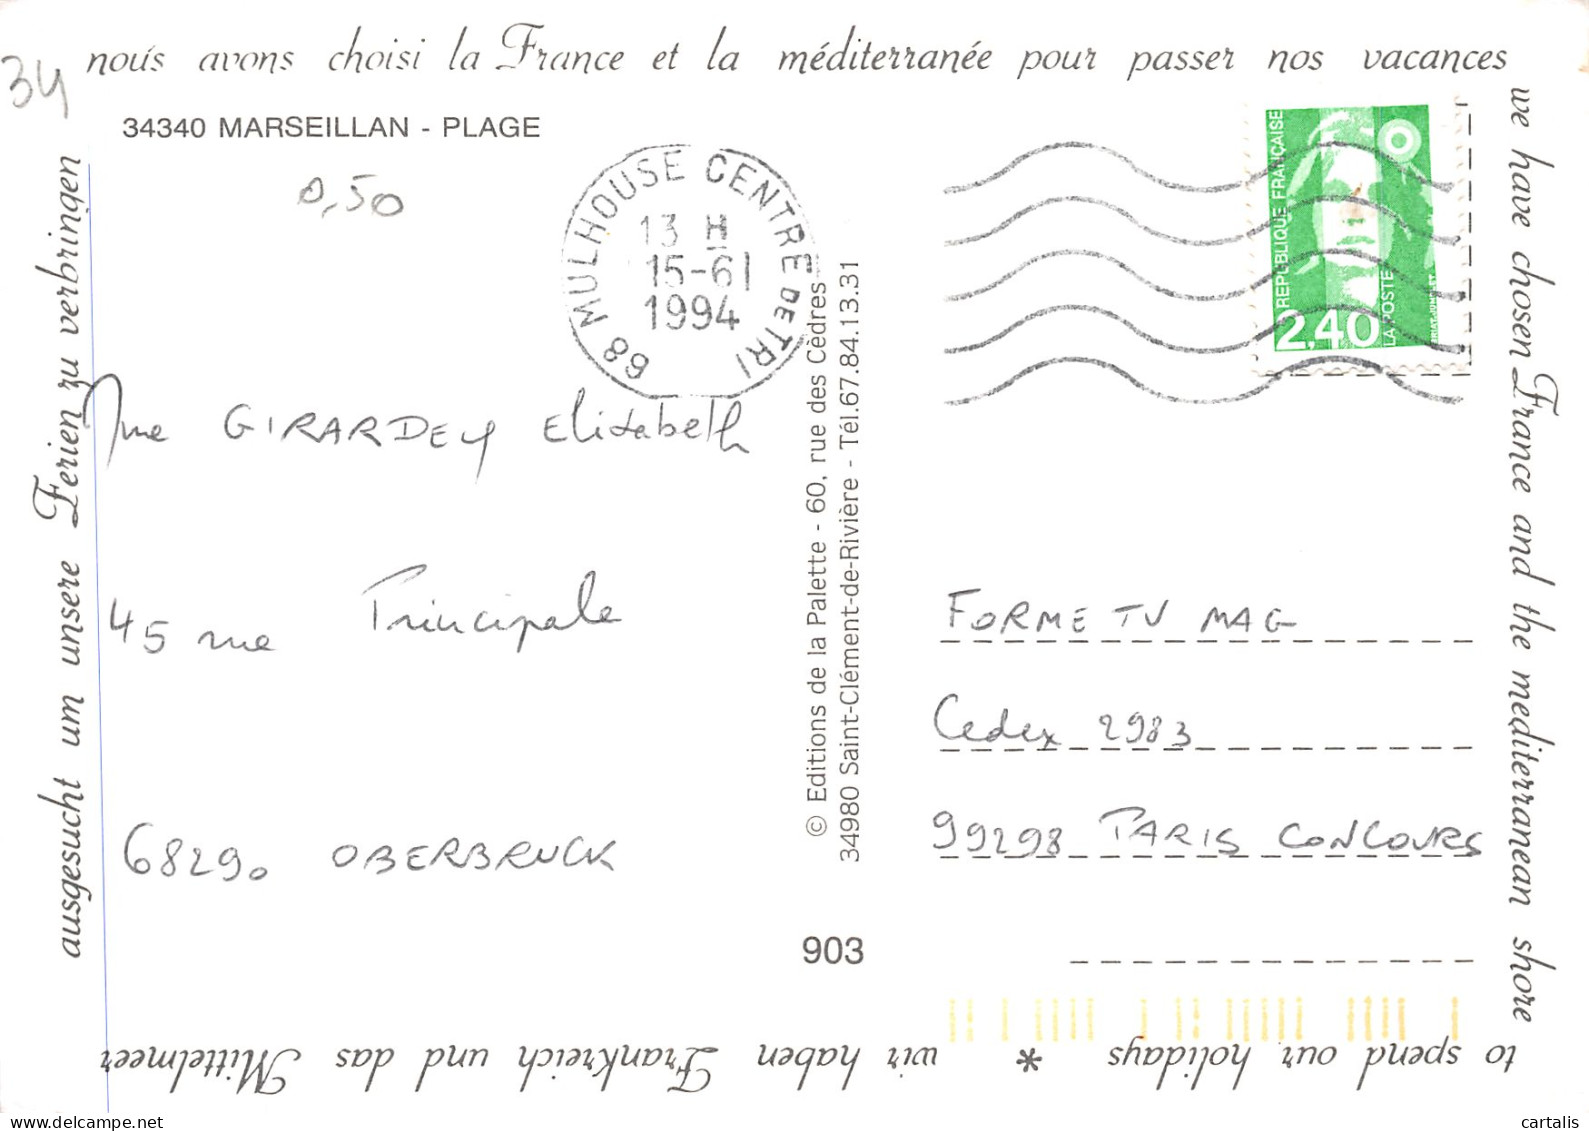 nous avons choisi la France et la méditerranée pour passer nos vacances
we have chosen France and the mediterranean shore
to spend our holidays * wir haben Frankreich und das Mittelmeer
ausgesucht um unsere Ferien zu verbringen
34
34340 MARSEILLAN - PLAGE
0,50
68 MULHOUSE CENTRE DE TRI
13 H
15-6
1994
REPUBLIQUE FRANÇAISE
LA POSTE
2,40
Mme GIRARDEY Elisabeth
45 rue Principale
68290 OBERBRUCK
© Editions de la Palette - 60, rue des Cèdres
34980 Saint-Clément-de-Rivière - Tél.67.84.13.31
903
FORME TV MAG
Cedex 2983
99298 PARIS CONCOURS
cartalis
delcampe.net